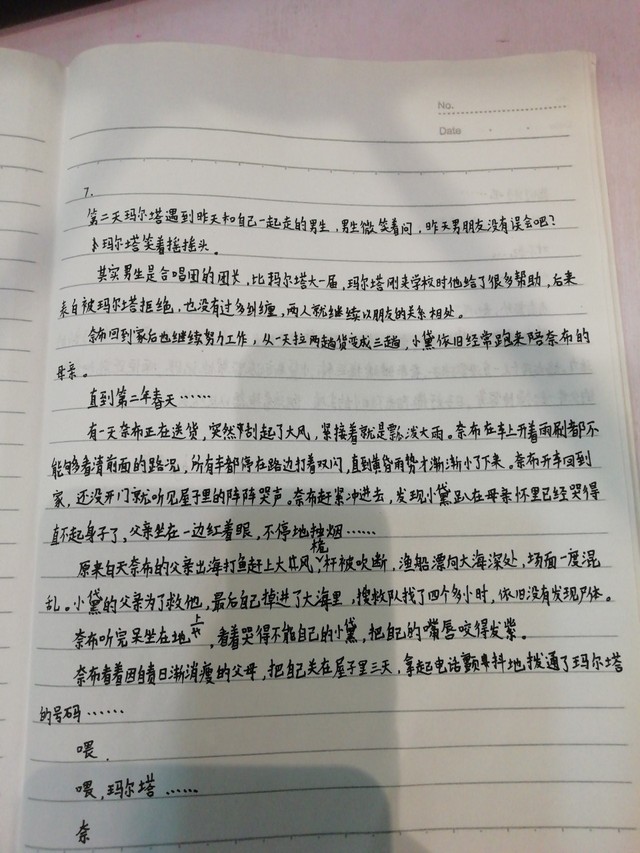 No.
Date
7.
第二天玛尔塔遇到昨天和自己一起走的男生,男生微笑着问,昨天男朋友没有误会吧?
玛尔塔笑着摇摇头。
其实男生是合唱团的团长,比玛尔塔大一届,玛尔塔刚来学校时他给了很多帮助,后来
表白被玛尔塔拒绝,也没有过多纠缠,两人就继续以朋友的关系相处。
奈布回到家后也继续努力工作,从一天拉两趟货变成三趟,小黛依旧经常跑来陪奈布的
母亲。
直到第二年春天……
有一天奈布正在送货,突然刮起了大风,紧接着就是瓢泼大雨。奈布在车上开着雨刷都不
能够看清前面的路况,所有车都停在路边打着双闪,直到黄昏雨势才渐渐小了下来。奈布开车回到
家,还没开门就听见屋子里的阵阵哭声。奈布赶紧冲进去,发现小黛趴在母亲怀里已经哭得
直不起身子了,父亲坐在一边红着眼,不停地抽烟……
原来白天奈布的父亲出海打鱼赶上大风,桅杆被吹断,渔船漂向大海深处,场面一度混
乱。小黛的父亲为了救他,最后自己掉进了大海里,搜救队找了四个多小时,依旧没有发现尸体。
奈布听完呆坐在地上,看着哭得不能自已的小黛,把自己的嘴唇咬得发紫。
奈布看着因自责日渐消瘦的父母,把自己关在屋子里三天,拿起电话颤抖地拨通了玛尔塔
的号码……
喂.
喂,玛尔塔……
奈